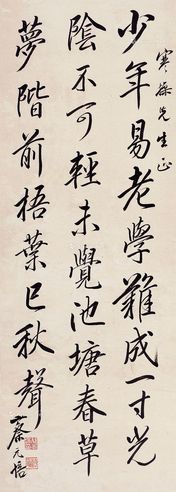 寒操先生正
少年易老學難成一寸光
陰不可輕未覺池塘春草
夢階前梧葉已秋聲
蔡元培